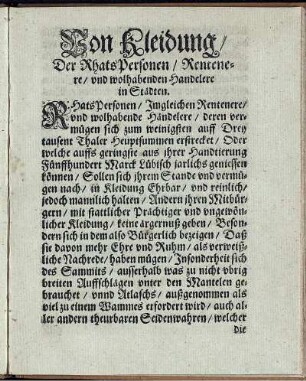 Von Kleidung /
Der RhatsPersonen / Rentene-
re / vnd wolhabenden Handelere
in Städten.
RHatsPersonen / Imgleichen Rentenere /
vnd wolhabende Händelere / deren ver-
mügen sich zum weinigsten auff Drey
tausent Thaler Heuptsummen erstrecket / Oder
welche auffs geringste aus ihrer Handtierung
Fünffhundert Marck Lübisch jarlichs geniessen
können / Sollen sich ihrem Stande vnd vermü-
gen nach / in Kleidung Ehrbar / vnd reinlich /
jedoch mannlich halten / Andern ihren Mitbür-
gern / mit stattlicher Prächtiger vnd vngewön-
licher Kleidung / keine ärgernuß geben / Beson-
dern sich in dem also Bürgerlich bezeigen / Daß
sie davon mehr Ehre vnd Ruhm / als verweiß-
liche Nachrede / haben mügen / Insonderheit sich
des Sammits / ausserhalb was zu nicht vbrig
breiten Auffschlägen vnter den Mantelen ge-
brauchet / vnnd Atlaschs / außgenommen als
viel zu einem Wammes erfordert wird / auch al-
ler andern theurbaren Seidenwahren / welcher
die